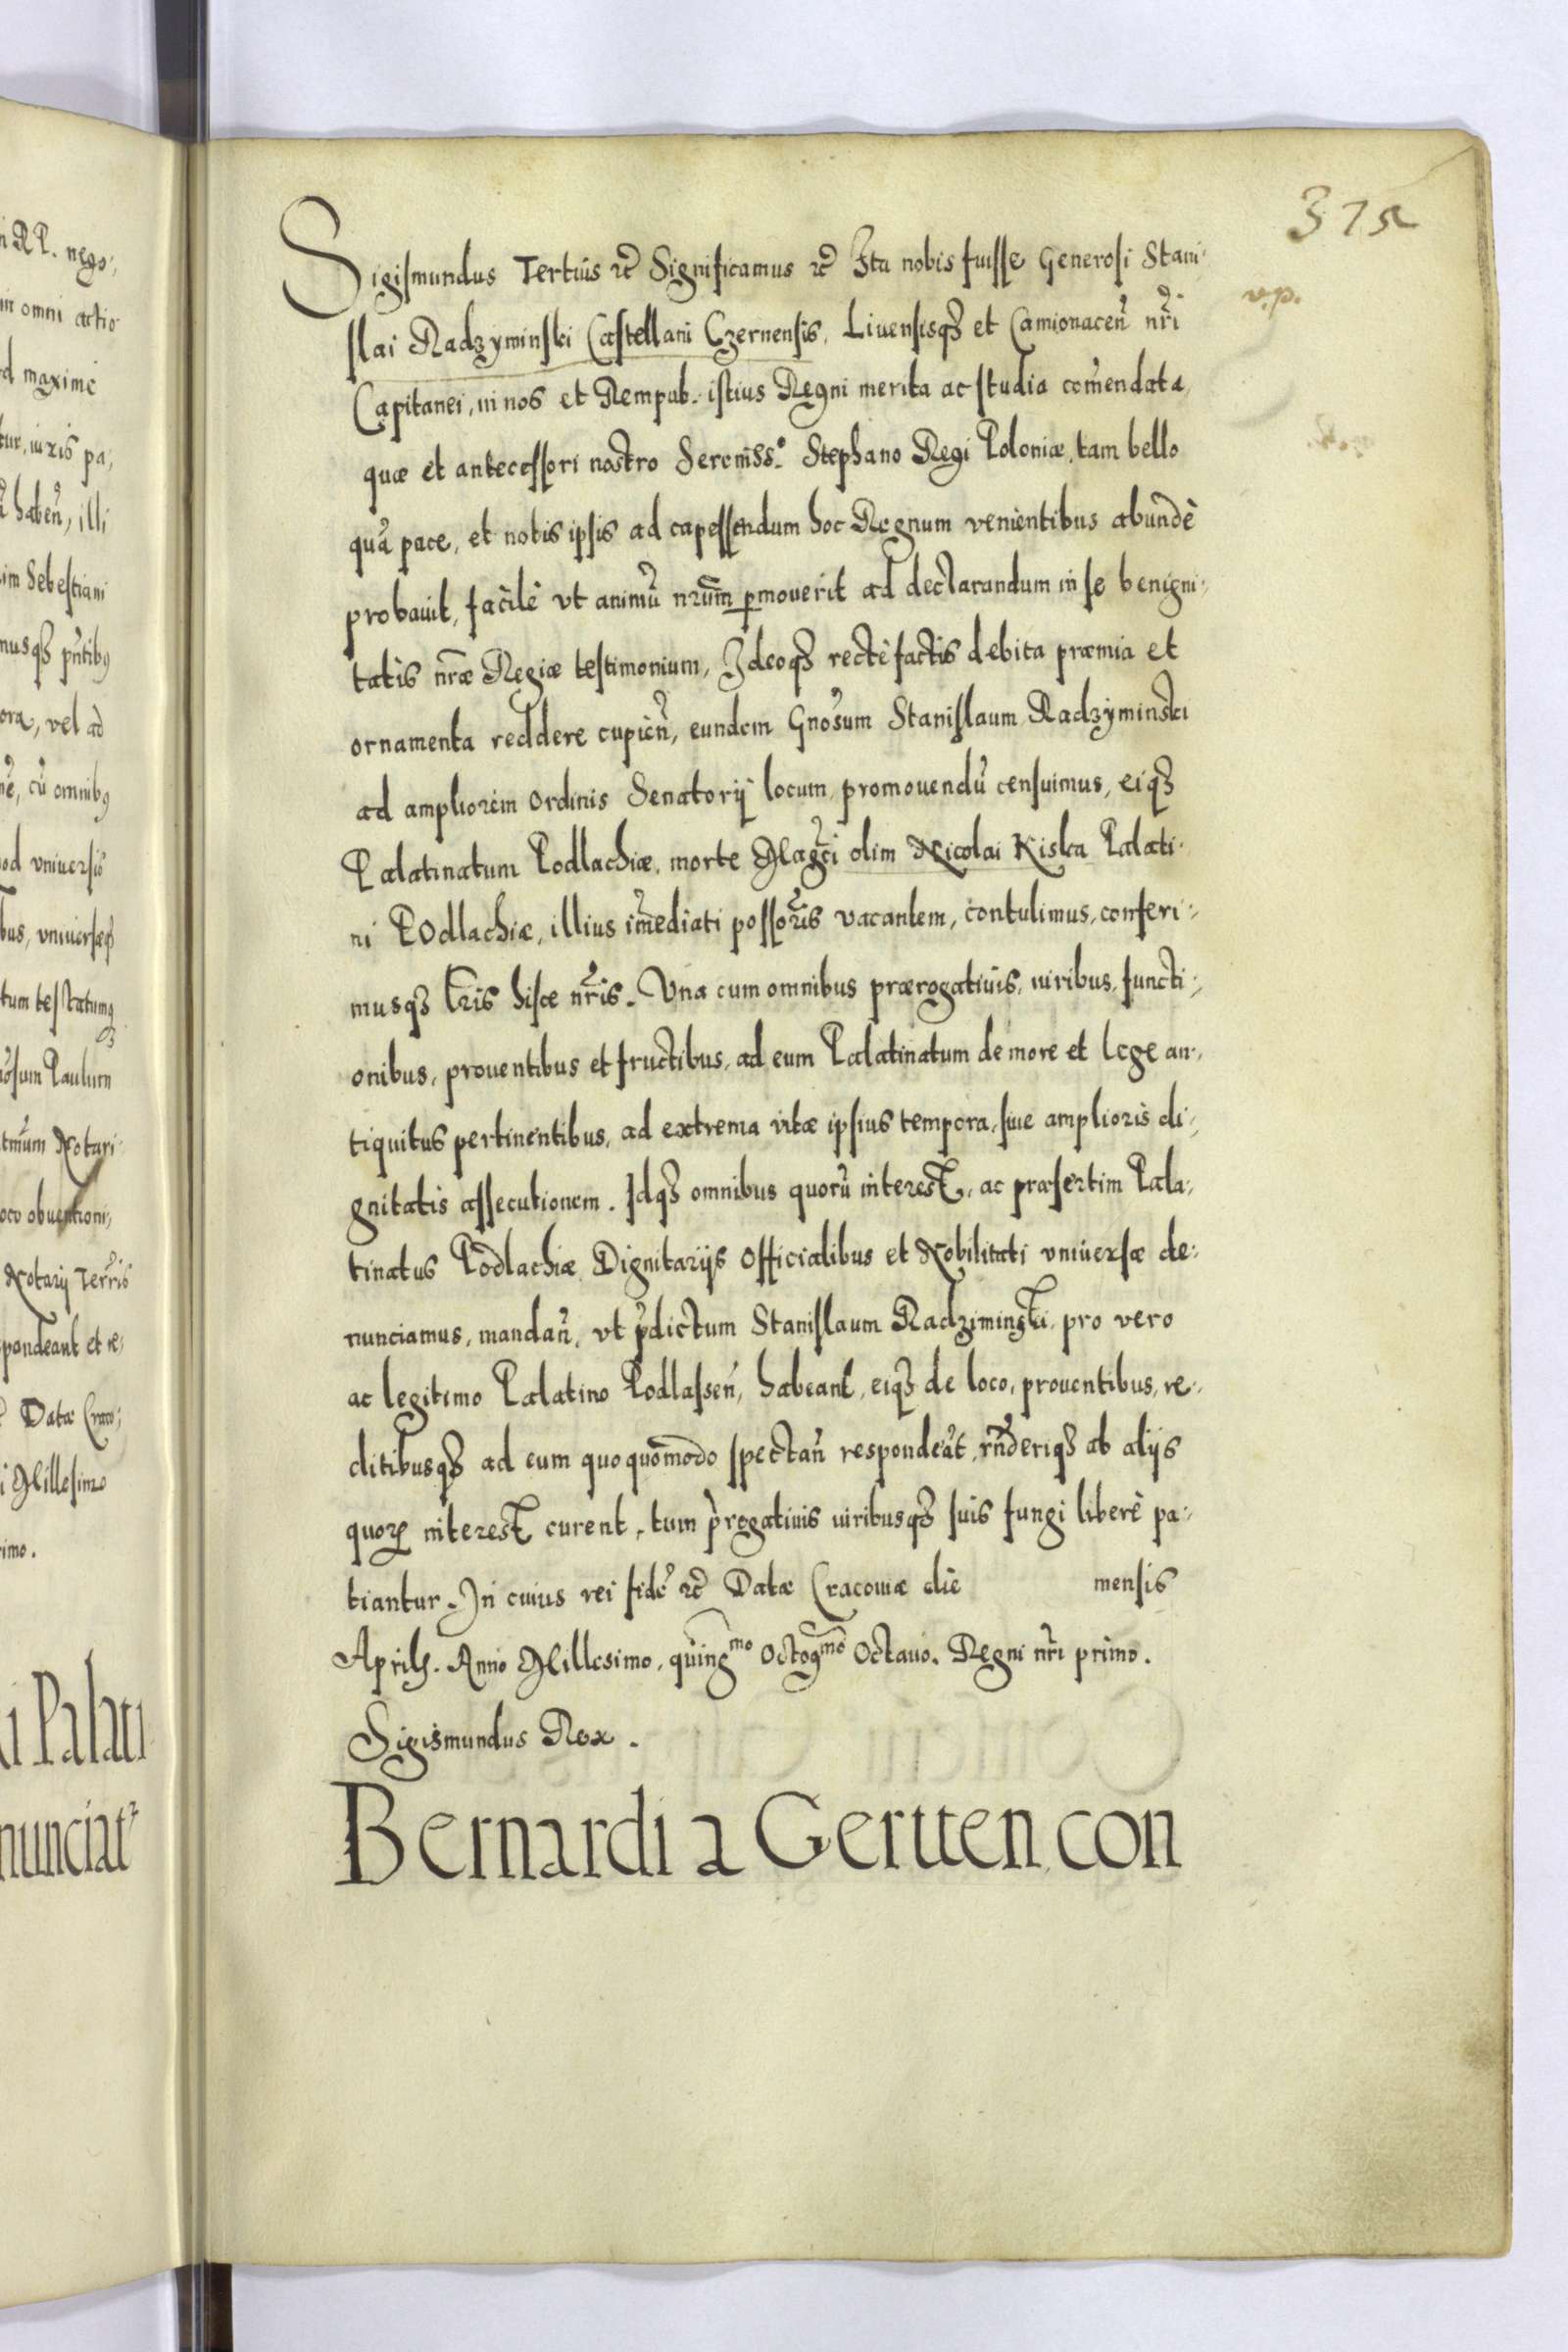 315
v.p.
Sigismundus Tertius &c̃ Significamus &c̃ Ita nobis fuisse Generosi Stani-
slai Radzyminski Castellani Czernensis, Liuensisq₃ et Camionaceñ nr̃i
Capitanei, in nos et Rempub. istius Regni merita ac studia com̃endata,
quæ et antecessori nostro Sereniss.º Stephano Regi Poloniæ, tam bello
quã pace, et nobis ipsis ad capessendum hoc Regnum venientibus abundè
probauit, facilè vt animũ nr̃um ꝑmouerit ad declarandum in se benigni-
tatis nr̃æ Regiæ testimonium, Ideoq₃ rectè factis debita præmia et
ornamenta reddere cupieñ, eundem Gñosum Stanislaum Radzyminski
ad ampliorem Ordinis Senatorij locum promouendũ censuimus, eiq₃
Palatinatum Podlachiæ, morte Mag̃ci olim Nicolai Kiska Palati-
ni Podlachiæ, illius im̃ediati possor̃is vacantem, contulimus, conferi-
musq₃ l̃ris hisce nr̃is. Vna cum omnibus prærogatiuis, iuribus, functi-
onibus, prouentibus et fructibus, ad eum Palatinatum de more et lege an-
tiquitus pertinentibus, ad extrema vitæ ipsius tempora, siue amplioris di-
gnitatis assecutionem. Idq₃ omnibus quorũ interest, ac præsertim Pala-
tinatus Podlachiæ Dignitarijs Officialibus et Nobilitati vniuersæ de-
nunciamus, mandañ, vt p̃dictum Stanislaum Radziminski, pro vero
ac legitimo Palatino Podlasseñ, habeant, eiq₃ de loco, prouentibus, re-
ditibusq₃ ad eum quoquõmodo spectañ respondeãt, rñderiq₃ ab alijs
quorꝝ interest curent, tum p̃rogatiuis iuribusq₃ suis fungi liberè pa-
tiantur. In cuius rei fidẽ &c̃ Datæ Cracouiæ die mensis
Aprilꝭ. Anno Millesimo, quingᵐᵒ Octogᵐᵒ Octauo. Regni nr̃i primo.
Sigismundus Rex.
Bernardi a Gertten con